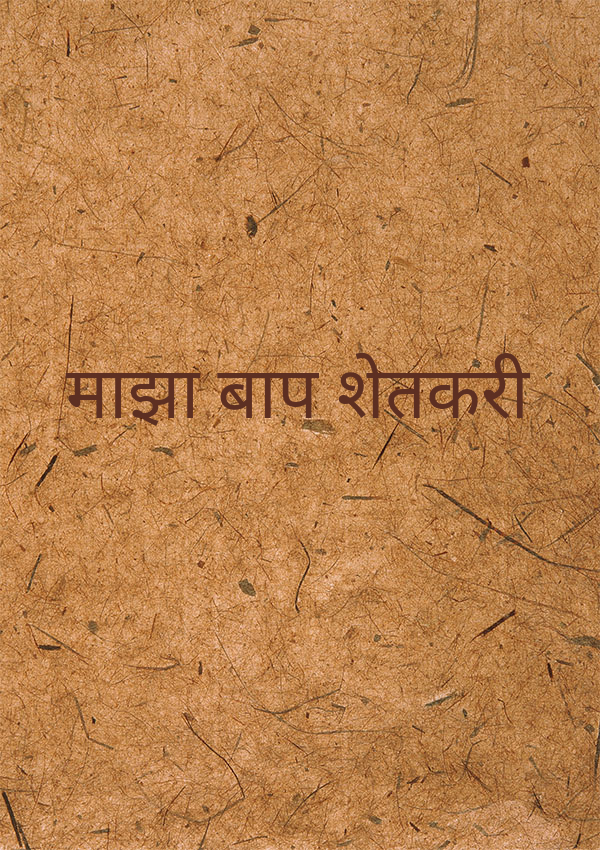 माझा बाप शेतकरी